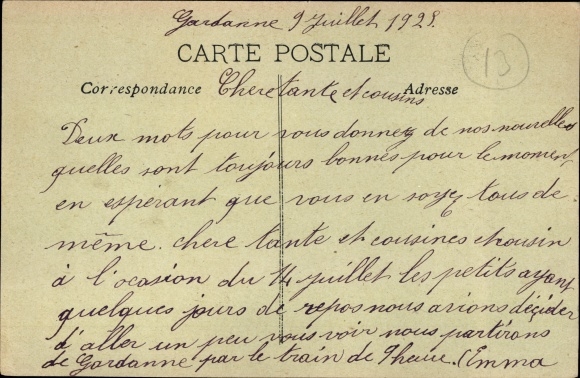 Gardanne 9 Juillet 1928.
13
CARTE POSTALE
Correspondance
Adresse
Chere tante et cousins
Deux mots pour vous donnez de nos nouvelles
quelles sont toujours bonnes pour le moment
en espérant que vous en soyez tous de
même. chere tante et cousines et cousin
à l'ocasion du 14 juillet les petits ayant
quelques jours de repos nous avions décider
d'aller un peu vous voir nous partirons
de Gardanne par le train de 7 heure. (Emma